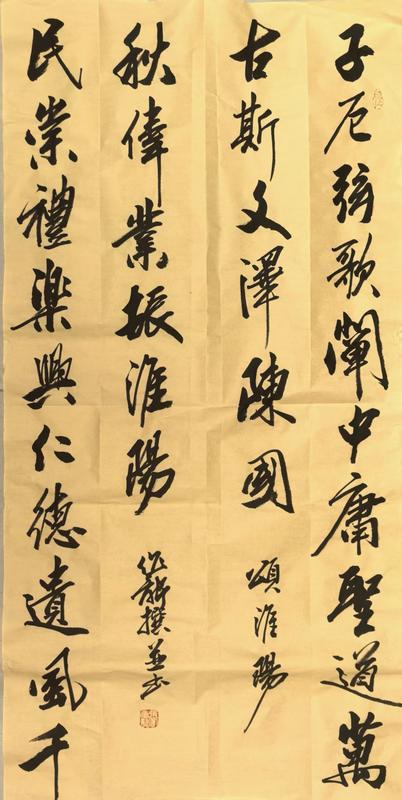 子厄弦歌闡中庸聖道萬
古斯文澤陳國
頌淮陽
民崇禮樂興仁德遺風千
秋偉業振淮陽
撰並书